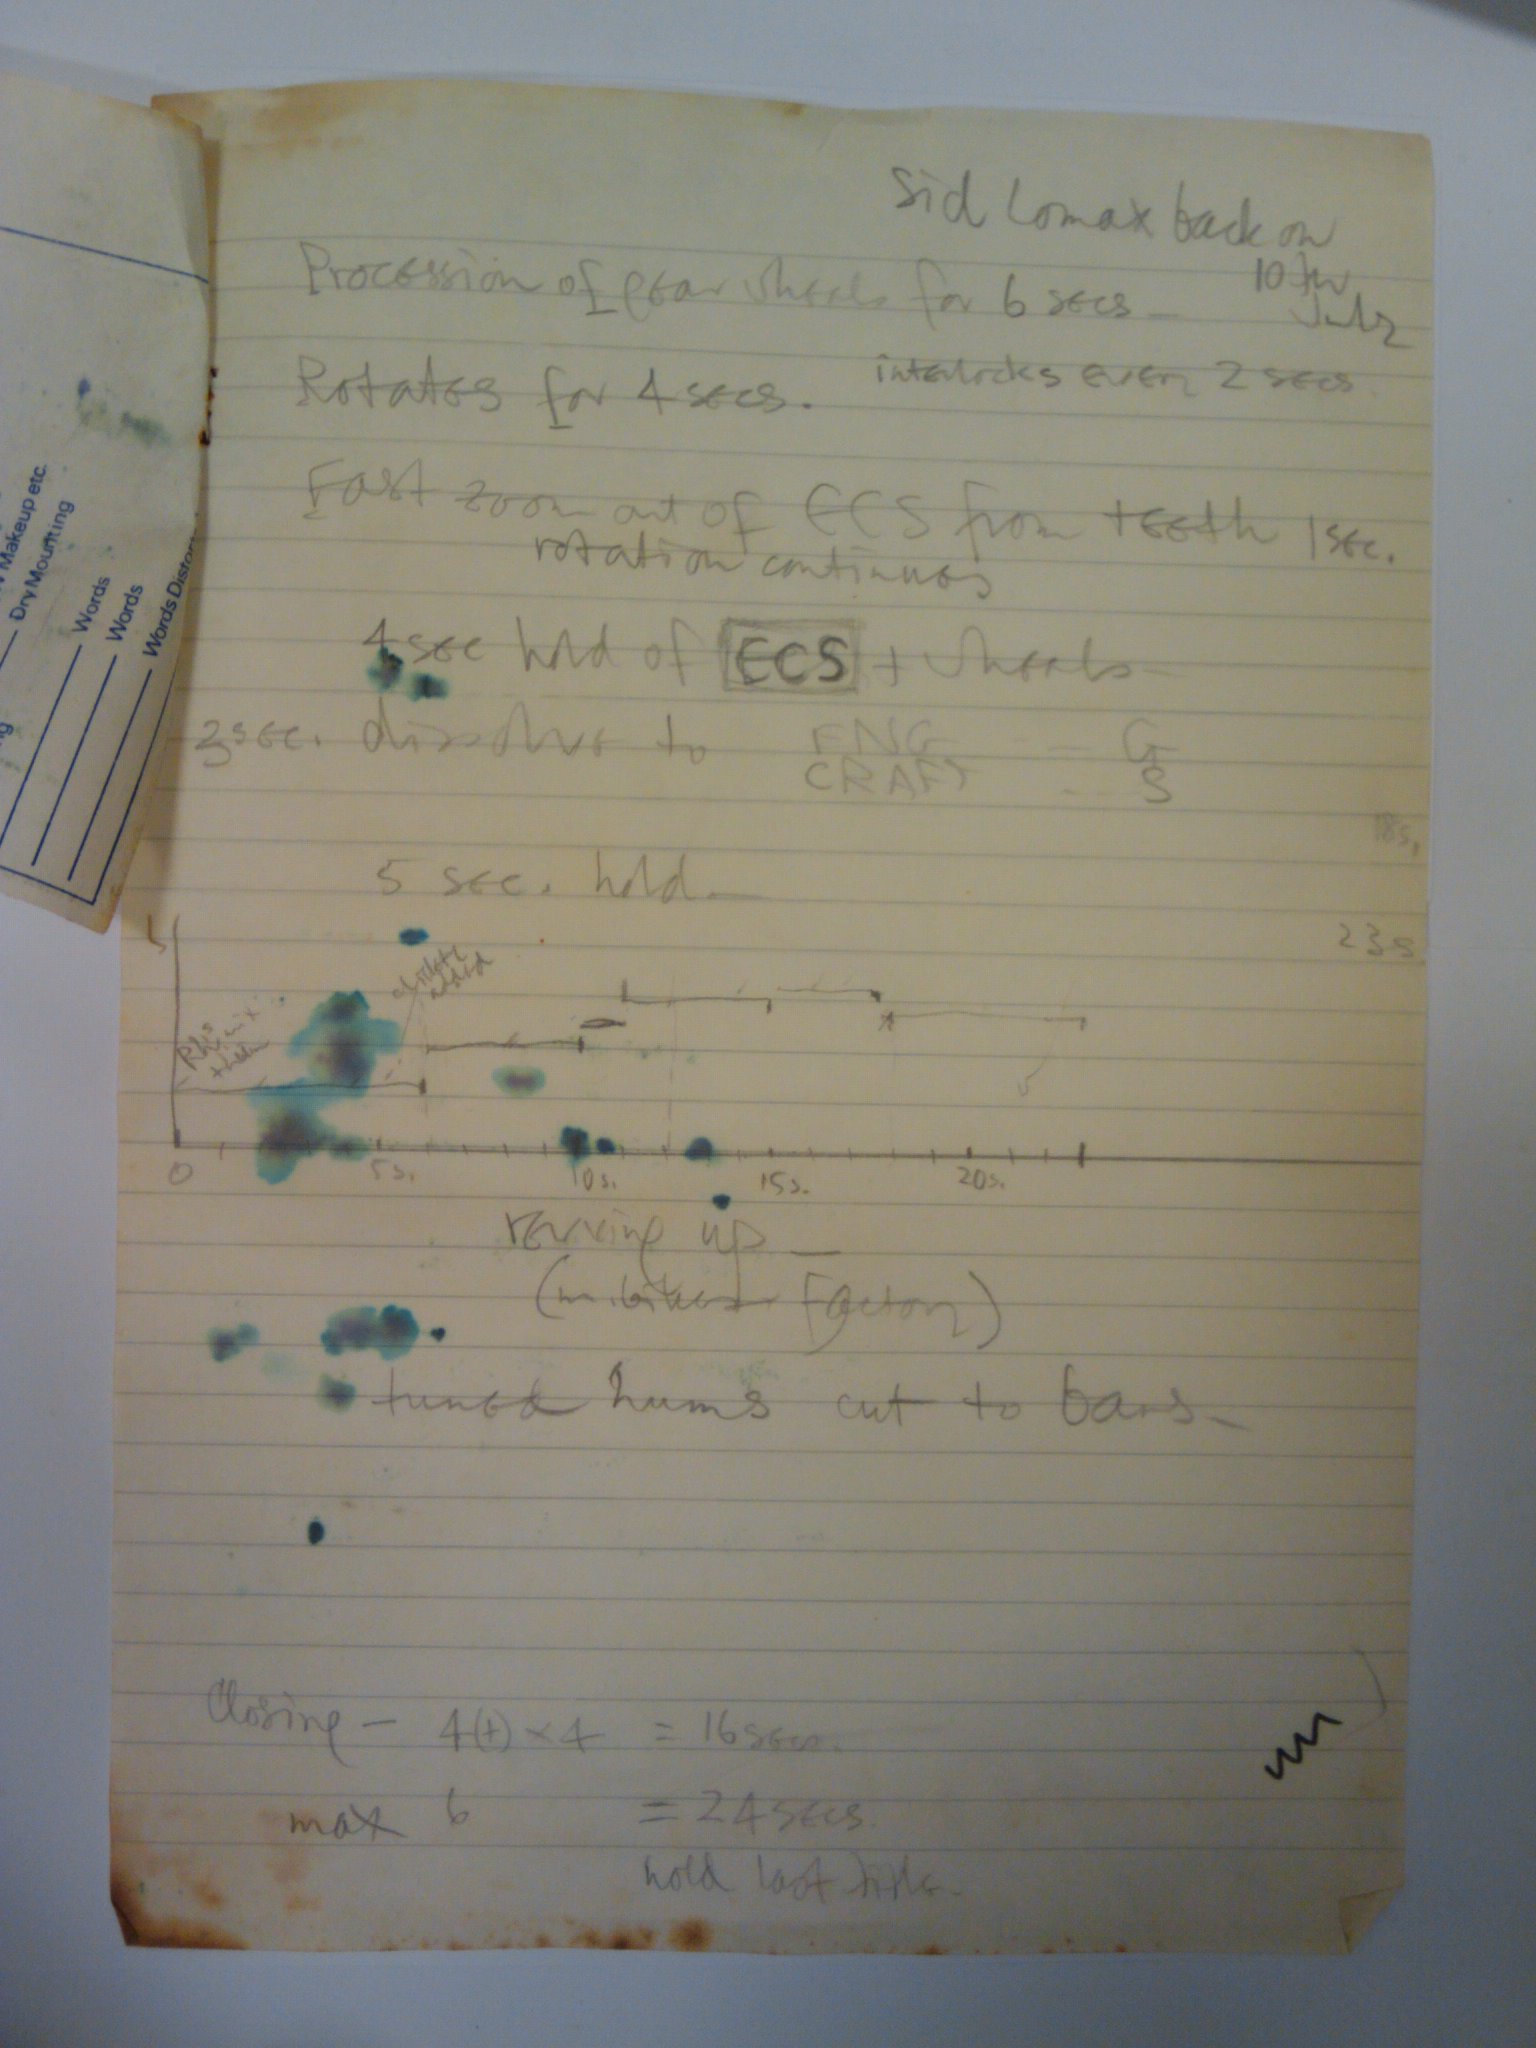 Sid Lomax back on
10th
July
Procession of gear wheels for 6 secs -
interlocks every 2 secs.
Rotates for 4 secs.
Fast zoom out of ECS from teeth 1 sec.
rotation continues
4 sec hold of ECS + wheels -
3 sec. dissolve to ENG - G
CRAFT - S
18s.
5 sec. hold -
23s
added
0 5s. 10s. 15s. 20s.
revving up -
Factory)
tuned hums cut to bars -
Closing - 4(+) × 4 = 16 secs.
max 6 = 24 secs.
hold last title.
Makeup etc.
Dry Mounting
Words
Words
Words Distor